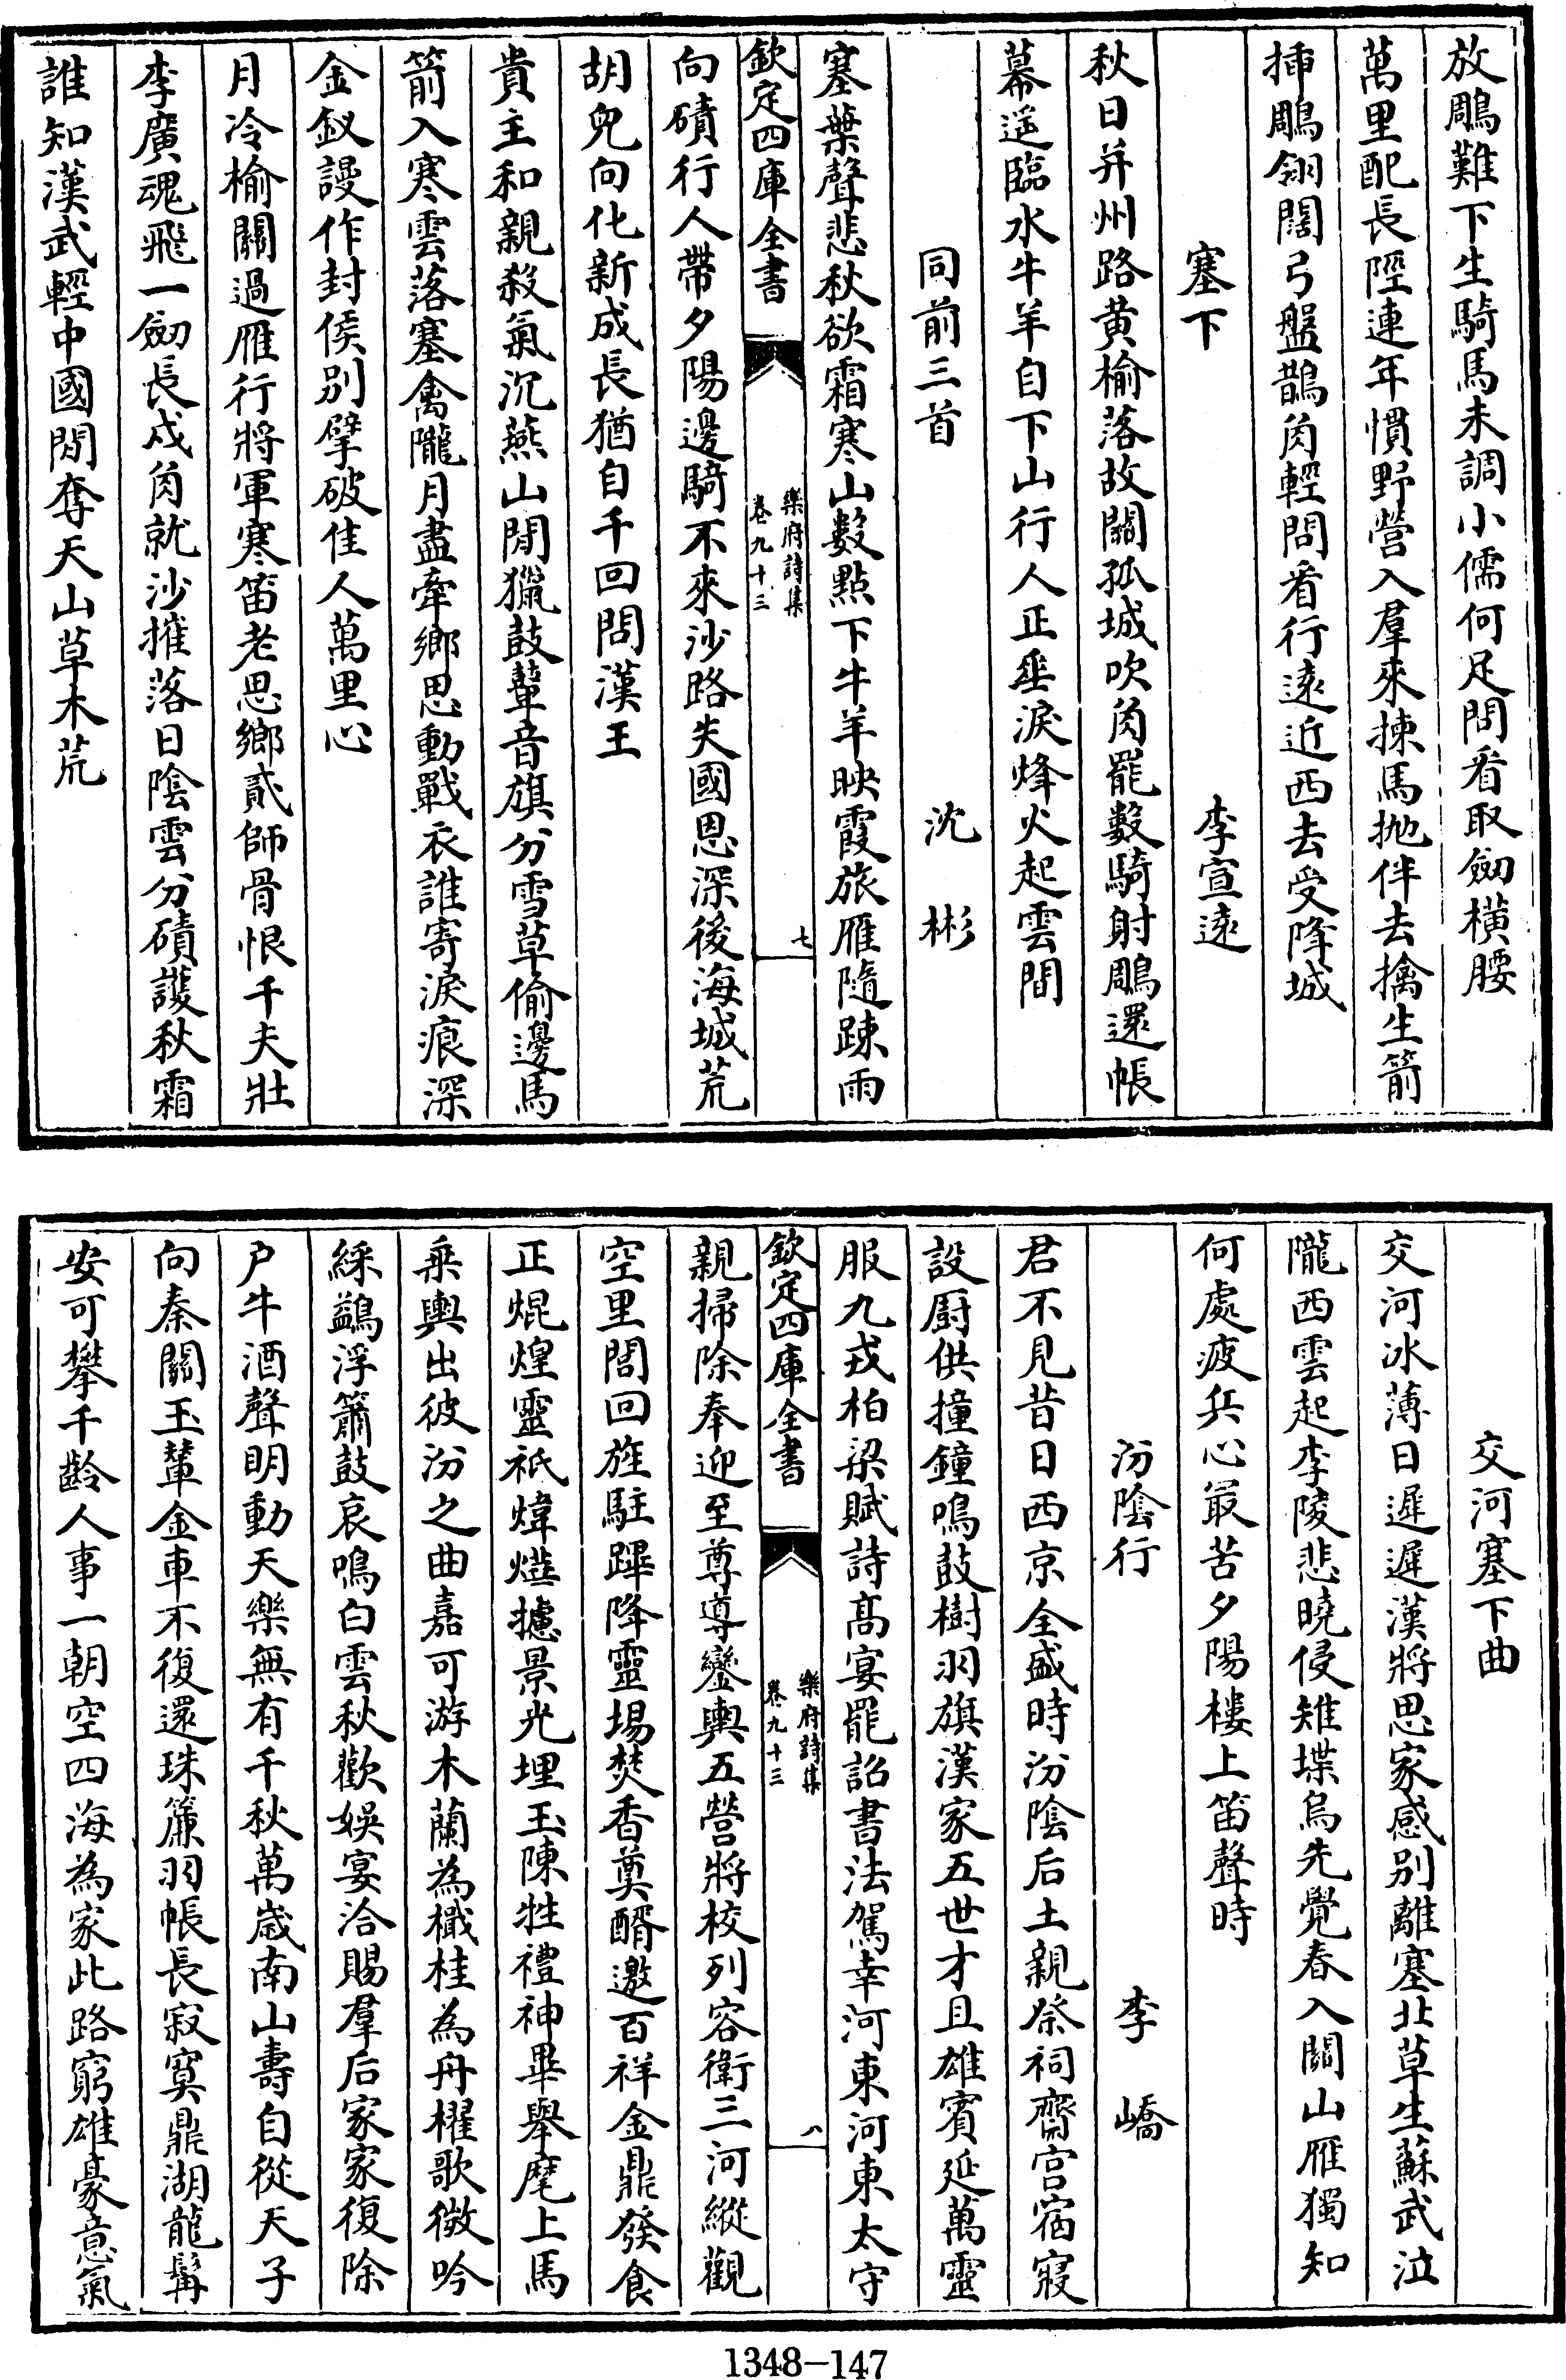 放鵰難下生騎馬未調小儒何足問看取劒橫腰
萬里配長陘連年慣野營入羣來揀馬抛伴去擒生箭
揷鵰翎闊弓盤鵲角輕問看行遠近西去受降城
塞下　李宣遠
秋日并州路黄榆落故關孤城吹角罷數騎射鵰還帳
幕遥臨水牛羊自下山行人正垂淚烽火起雲間
同前三首　沈彬
塞葉聲悲秋欲霜寒山數點下牛羊映霞旅雁隨踈雨
欽定四庫全書　樂府詩集卷九十三　七
向磧行人帶夕陽邊騎不來沙路失國恩深後海城荒
胡兒向化新成長猶自千回問漢王
貴主和親殺氣沉燕山閒獵鼓鼙音旗分雪草偷邊馬
箭入寒雲落塞禽隴月盡牽鄉思動戰衣誰寄淚痕深
金釵謾作封侯别擘破佳人萬里心
月冷榆關過雁行將軍寒笛老思鄉貳師骨恨千夫壯
李廣魂飛一劒長戍角就沙摧落日陰雲分磧護秋霜
誰知漢武輕中國閒奪天山草木荒
交河塞下曲
交河冰薄日遲遲漢將思家感别離塞北草生蘇武泣
隴西雲起李陵悲曉侵雉堞烏先覺春入關山雁獨知
何處疲兵心最苦夕陽樓上笛聲時
汾陰行　李嶠
君不見昔日西京全盛時汾陰后土親祭祠齋宫宿寢
設厨供撞鐘鳴鼓樹羽旗漢家五世才且雄賓延萬靈
服九戎柏梁賦詩髙宴罷詔書法駕幸河東河東太守
欽定四庫全書　樂府詩集卷九十三　八
親掃除奉迎至尊導鑾輿五營將校列容衛三河縱觀
空里閭回旌駐蹕降靈埸焚香奠醑邀百祥金鼎發食
正焜煌靈祇煒燁攄景光埋玉陳牲禮神畢舉麾上馬
乗輿出彼汾之曲嘉可游木蘭為檝桂為舟櫂歌微吟
綵鷁浮簫鼓哀鳴白雲秋歡娛宴洽賜羣后家家復除
户牛酒聲明動天樂無有千秋萬歲南山壽自從天子
向秦關玉輦金車不復還珠簾羽帳長寂寞鼎湖龍髯
安可攀千齡人事一朝空四海為家此路窮雄豪意氣
1348-147